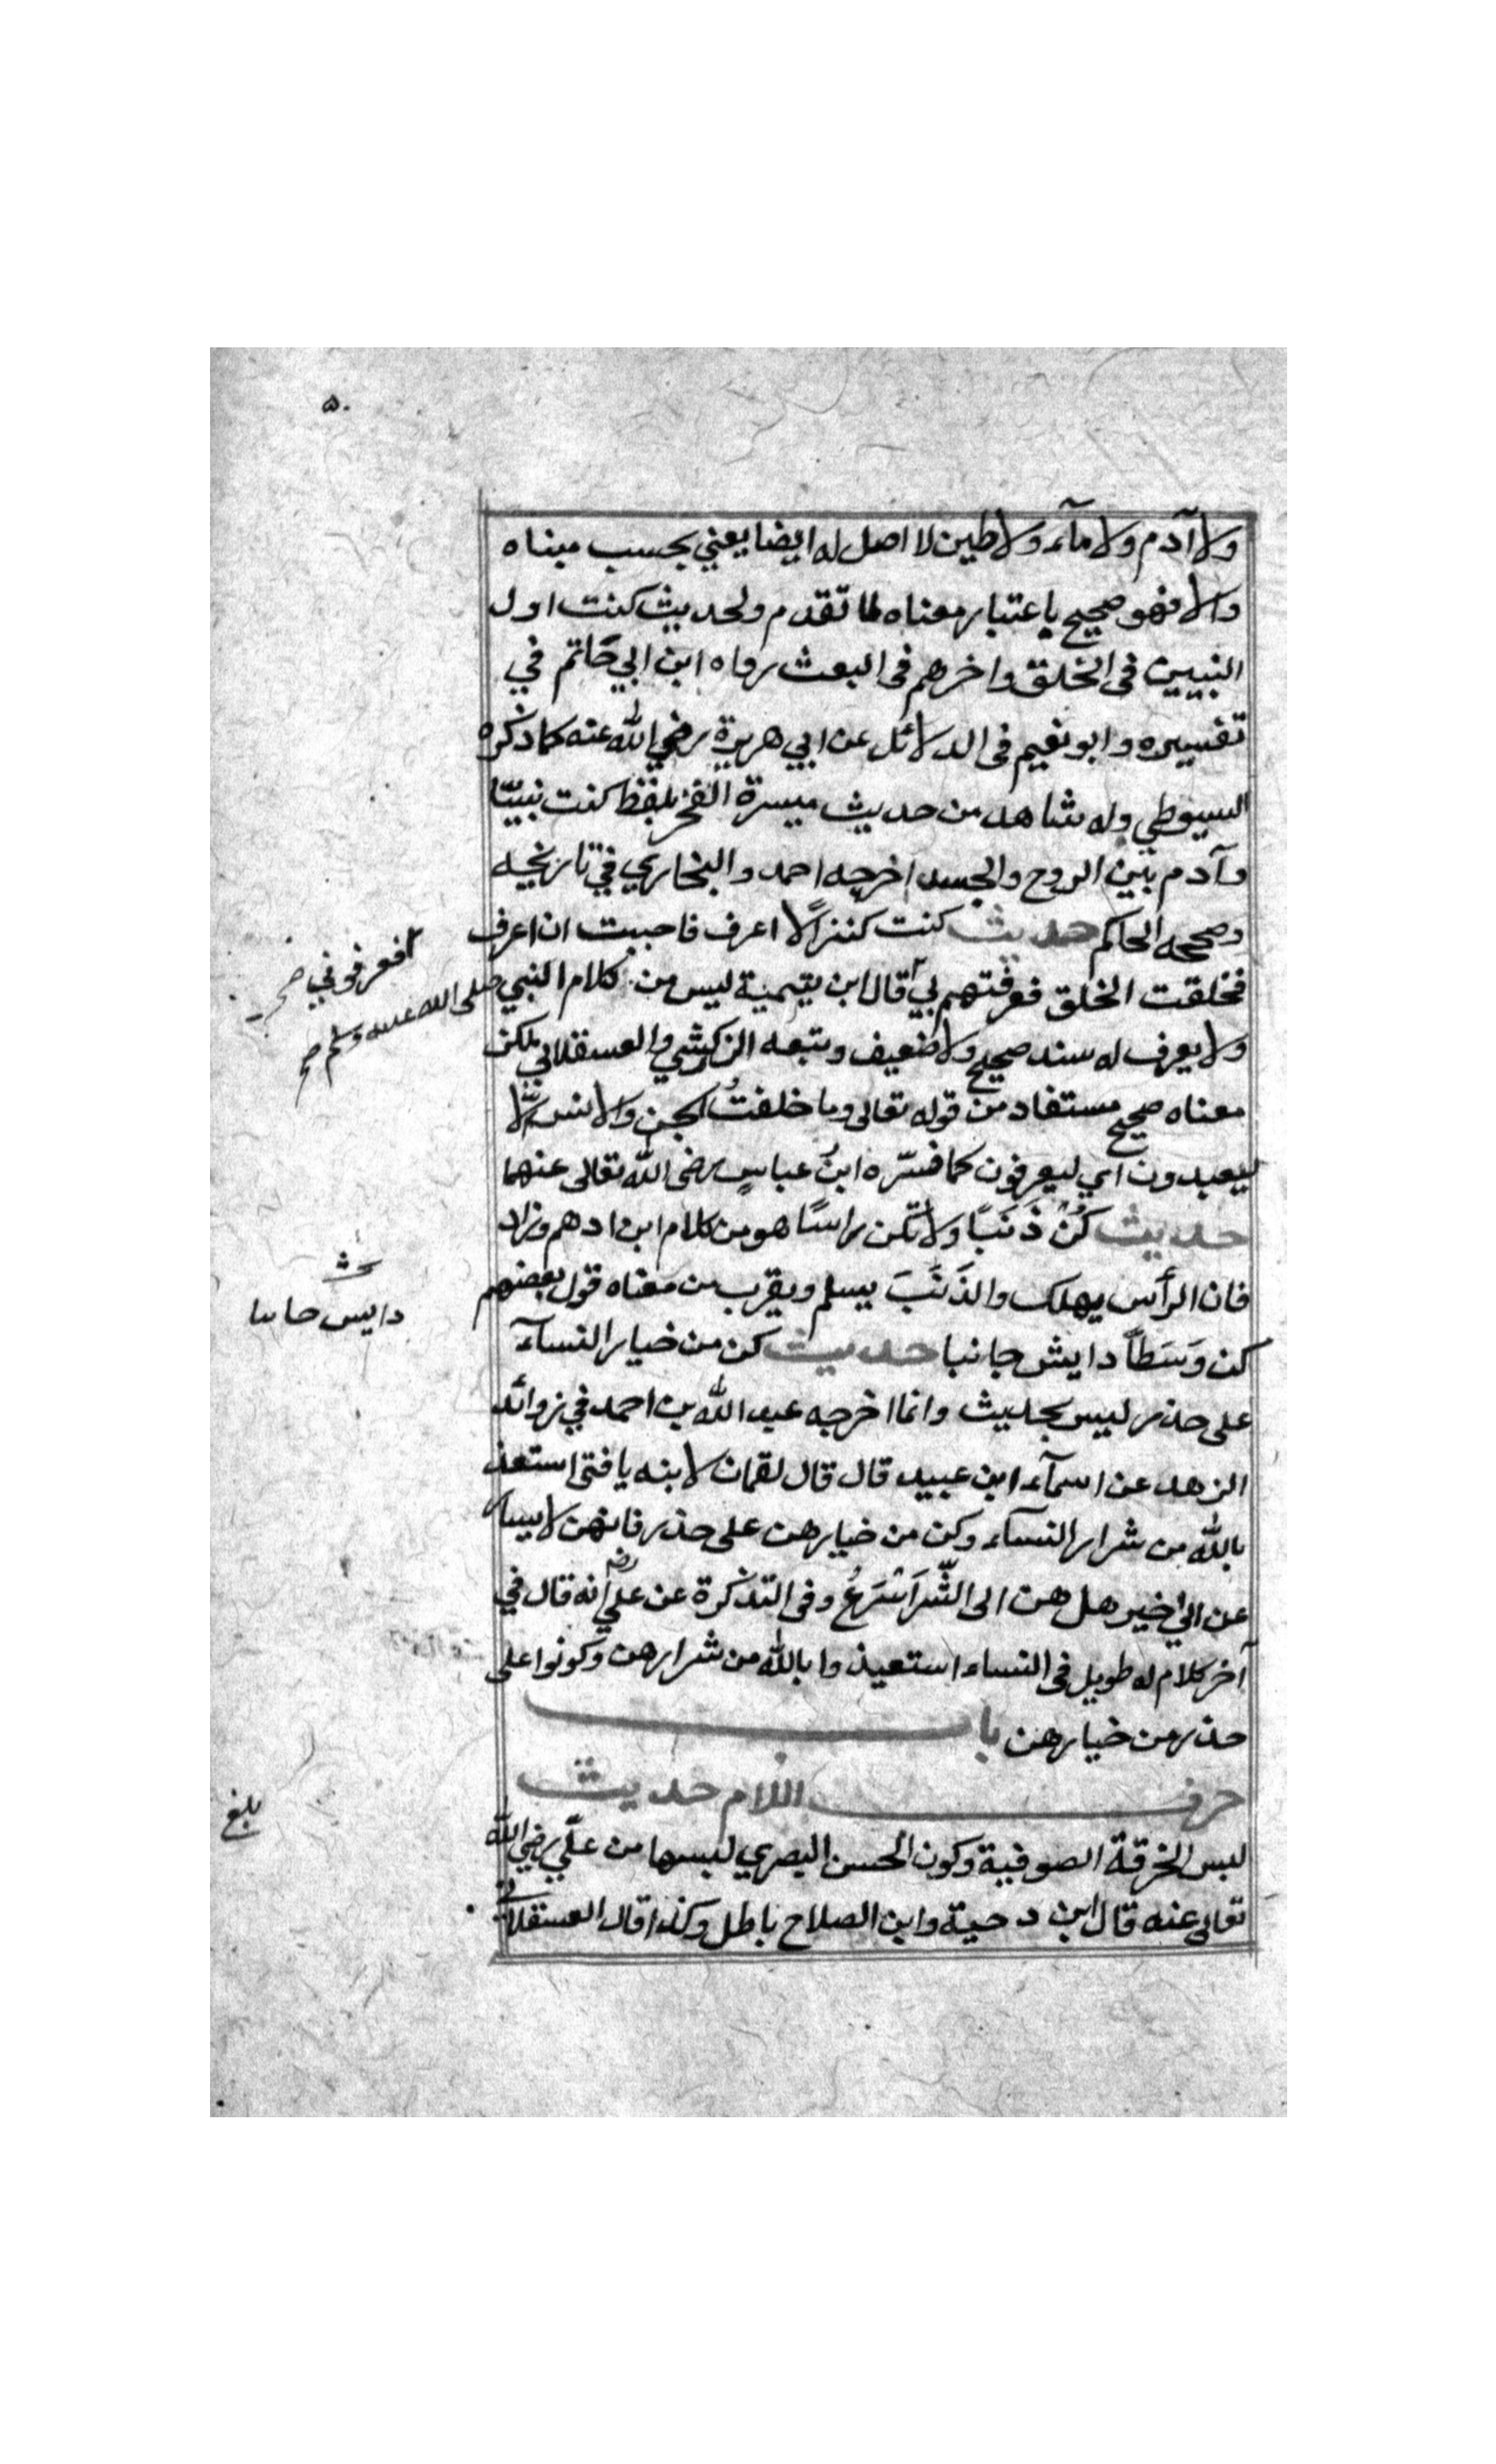 ٥٠
ولا آدم ولا مآء ولا طين لا اصل له ايضا يعني بحسب مبناه
والا فهو صحيح باعتبار معناه لما تقدم ولحديث كنت اول
النبيين فى الخلق واخرهم فى البعث رواه ابن ابي حَاتم في
تفسيره وابو نعيم فى الدلائل عن ابي هريرة رضي الله عنه كما ذكره
السيوطي وله شاهد من حديث ميسرة الفخر بلفظ كنت نبيّا
وآدم بين الروح والجسد اخرجه احمد والبخاري في تاريخيه
وصححه الحاكم حديث كنت كنزاً لا اعرف فاحببت ان اعرف
فخلقت الخلق فعرفتهم بي قال ابن تيمية ليس من كلام النبي
فعرفوني صح
صلى الله عليه وسلم صح
ولا يعرف له سند صحيح ولا ضعيف وتبعه الزركشي والعسقلاني لكن
معناه صحيح مستفاد من قوله تعالى وما خلقتُ الجن والانس الّا
ليعبدون اي ليعرفون كما فسّره ابنُ عباسٍ رضى الله تعالى عنهما
حديث كُنْ ذَنَبًا ولا تكن راسًا هو من كلام ابن ادهم وزاد
فان الرأس يهلك والذَنَبَ يسلم ويقرب من معناه قول بعضهم
كن وَسَطاً دايش جانبا حديث كن من خيار النسآء
دايس حاىىا
على حذر ليس بحديث وانما اخرجه عبد الله بن احمد في زوائد
الزهد عن اسمآء ابن عبيد قال قال لقمان لابنه يا فتى استعذ
بالله من شرار النسآء وكن من خيارهن على حذر فانهن لا يسار
عن الى خير هل هن الى الشّرَ اسْرَعُ وفى التذكرة عن علي رضـ انه قال في
آخر كلام له طويل فى النساء استعيذوا بالله من شرارهن وكونوا على
حذر من خيارهن باب
حرف اللام حديث
بلغ
لبس الخرقة الصوفية وكون الحسن البصري لبسها من علّي رضي الله
تعالى عنه قال ابن دحية وابن الصلاح باطل وكذا قال العسقلاني